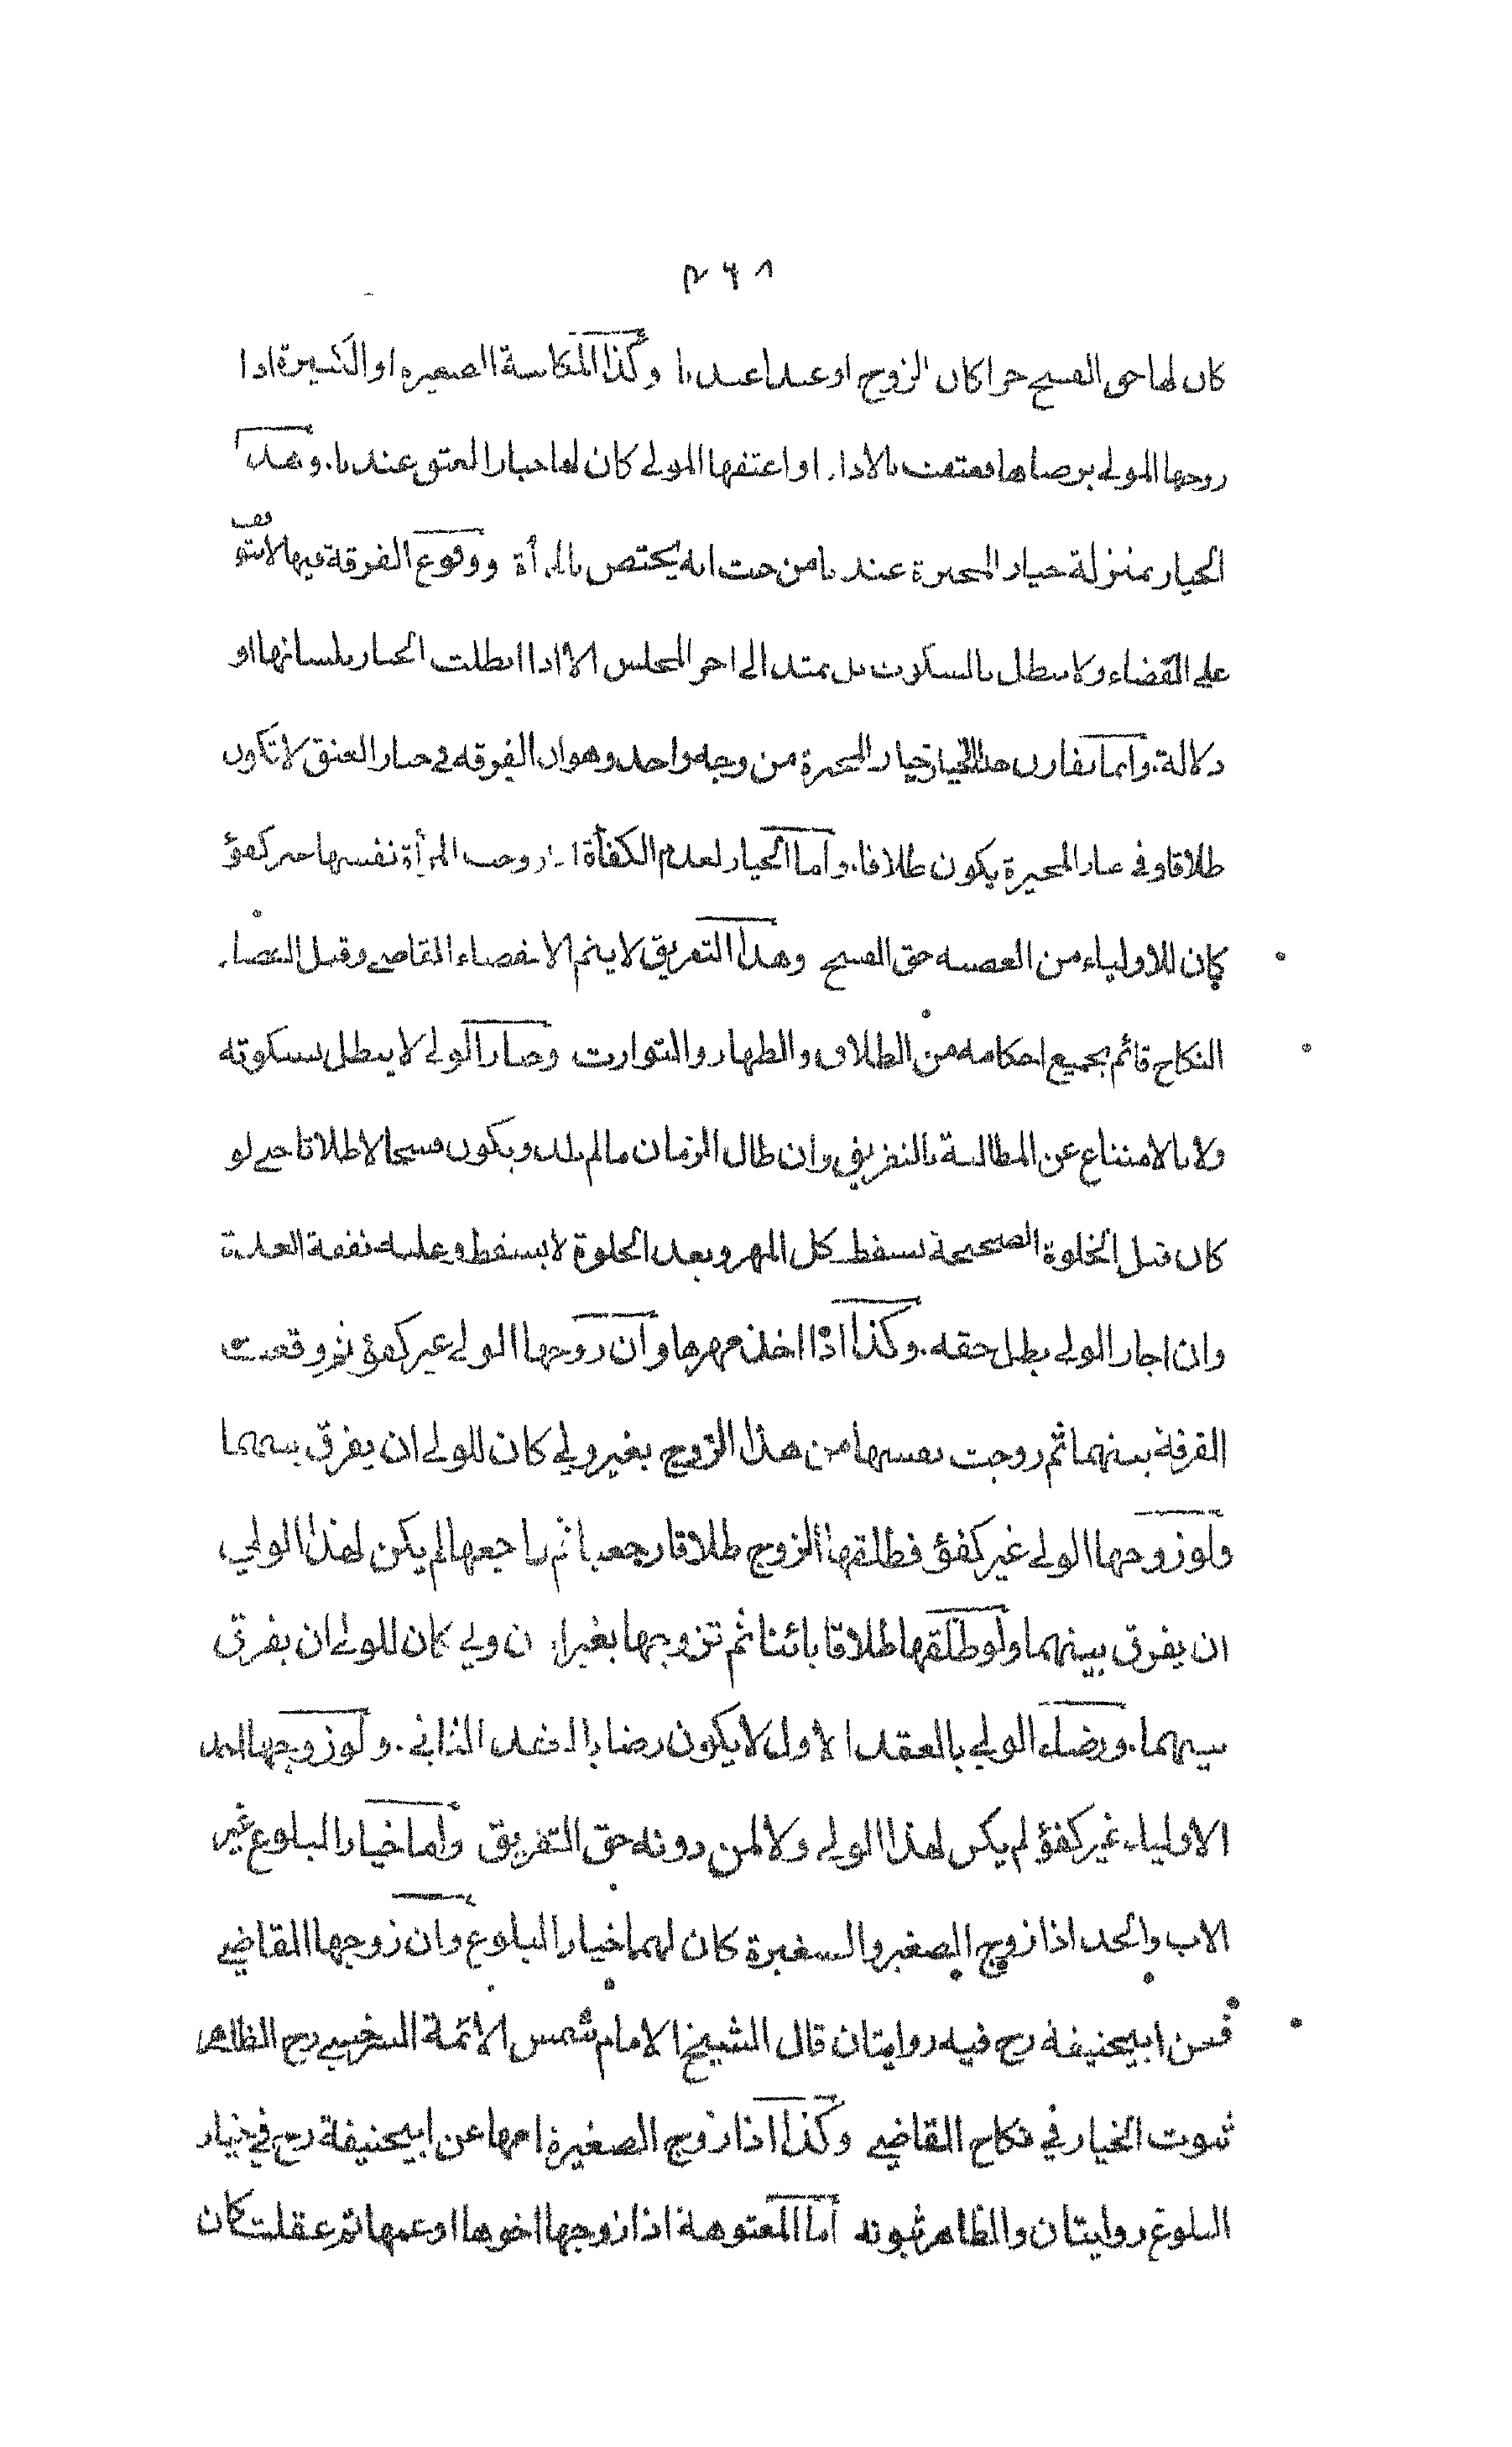 ٢٦٨
كان لها حق الفسخ حرا كان الزوج او عبدا عندنا وكذا المكاتبة الصغيرة او الكبيرة اذا
زوجها المولى برضاها فعتقت بالاداء او اعتقها المولى كان لها خيار العتق عندنا. وهذا
الخيار بمنزلة خيار المخيرة عندنا من حيث انه يختص بالمرأة ووقوع الفرقة فيها لا يتوقف
على القضاء ولا يبطل بالسكوت بل يمتد الى اخر المجلس الا اذا ابطلت الخيار بلسانها او
دلالة. وانما يفارق هذا الخيار خيار المخيرة من وجه واحد وهو ان الفرقه في خيار العتق لا تكون
طلاقا وفي خيار المخيرة يكون طلاقا. واما الخيار لعدم الكفأة اذا زوجت المرأة نفسها من غير كفؤ
كان للاولياء من العصبه حق الفسخ وهذا التفريق لا يتم الا بقضاء القاضي وقبل القضاء
النكاح قائم بجميع احكامه من الطلاق والظهار والتوارث وخيار الولي لا يبطل بسكوته
ولا بالامتناع عن المطالبة بالتفريق وان طال الزمان ما لم تلد ويكون فسخا لا طلاقا حتى لو
كان قبل الخلوة الصحيحة يسقط كل المهر وبعد الخلوة لا يسقط وعليه نفقة العدة
وان اجاز الولي بطل حقه. وكذا اذا اخذ مهرها وان زوجها الولي غير كفؤ ثم وقعت
الفرقة بينهما ثم زوجت نفسها من هذا الزوج بغير ولي كان للولي ان يفرق بينهما
ولو زوجها الولي غير كفؤ فطلقها الزوج طلاقا رجعيا ثم راجعها لم يكن لهذا الولي
ان يفرق بينهما ولو طلقها طلاقا بائنا ثم تزوجها بغير اذن ولي كان للولي ان يفرق
بينهما. ورضاء الولي بالعقد الاول لا يكون رضا بالعقد الثاني. ولو زوجها احد
الاولياء غير كفؤ لم يكن لهذا الولي ولا لمن دونه حق التفريق واما خيار البلوغ غير
الاب والجد اذا زوج الصغير والصغيرة كان لهما خيار البلوغ وان زوجها القاضي
فعن ابيحنيفة رح فيه روايتان قال الشيخ الامام شمس الائمة السرخسي رح الظاهر
ثبوت الخيار في نكاح القاضي وكذا اذا زوج الصغيرة امها عن ابيحنيفة رح في خيار
البلوغ روايتان والظاهر ثبوته اما المعتوهة اذا زوجها اخوها او عمها ثم عقلت كان